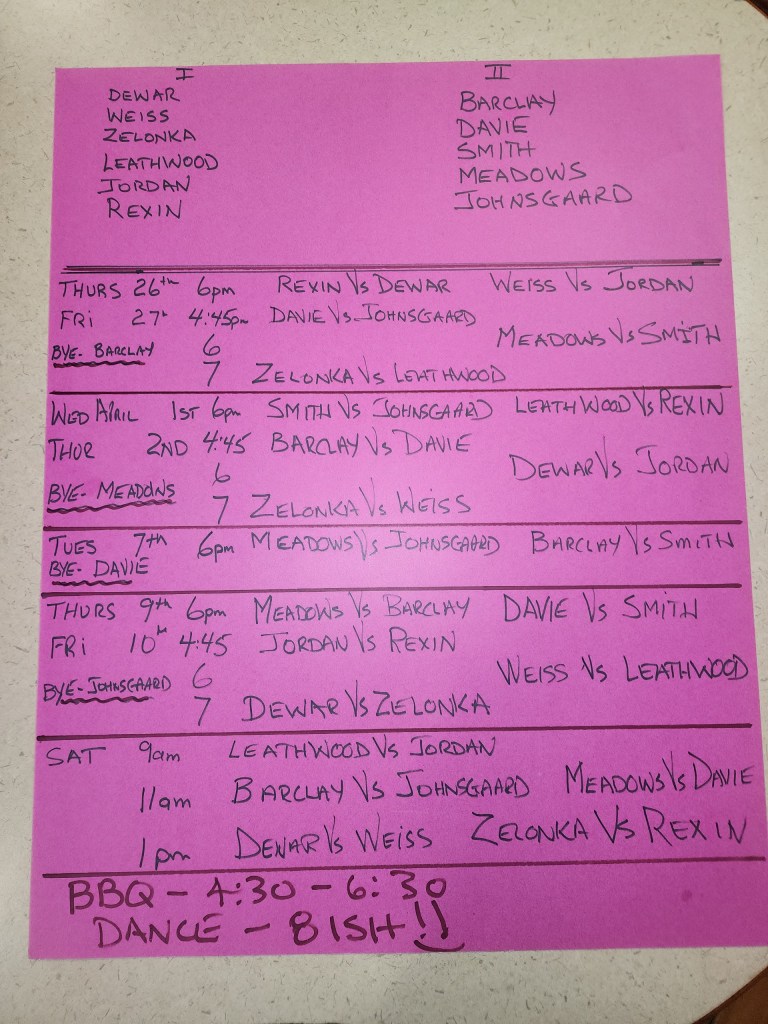 I II
DEWAR BARCLAY
WEISS DAVIE
ZELONKA SMITH
LEATHWOOD MEADOWS
JORDAN JOHNSGAARD
REXIN
THURS 26th 6pm REXIN Vs DEWAR WEISS Vs JORDAN
FRI 27th 4:45pm DAVIE Vs JOHNSGAARD
BYE- BARCLAY 6 MEADOWS Vs SMITH
7 ZELONKA Vs LEATHWOOD
WED APRIL 1ST 6pm SMITH Vs JOHNSGAARD LEATHWOOD Vs REXIN
THUR 2ND 4:45 BARCLAY Vs DAVIE
6 DEWAR Vs JORDAN
BYE- MEADOWS
7 ZELONKA Vs WEISS
TUES 7th 6pm MEADOWS Vs JOHNSGAARD BARCLAY Vs SMITH
BYE- DAVIE
THURS 9th 6pm MEADOWS Vs BARCLAY DAVIE Vs SMITH
FRI 10th 4:45 JORDAN Vs REXIN
BYE-JOHNSGAARD 6 WEISS Vs LEATHWOOD
7 DEWAR Vs ZELONKA
SAT 9am LEATHWOOD Vs JORDAN
11am BARCLAY Vs JOHNSGAARD MEADOWS Vs DAVIE
1pm DEWAR Vs WEISS ZELONKA Vs REXIN
BBQ - 4:30 - 6:30
DANCE - 8 ISH!!